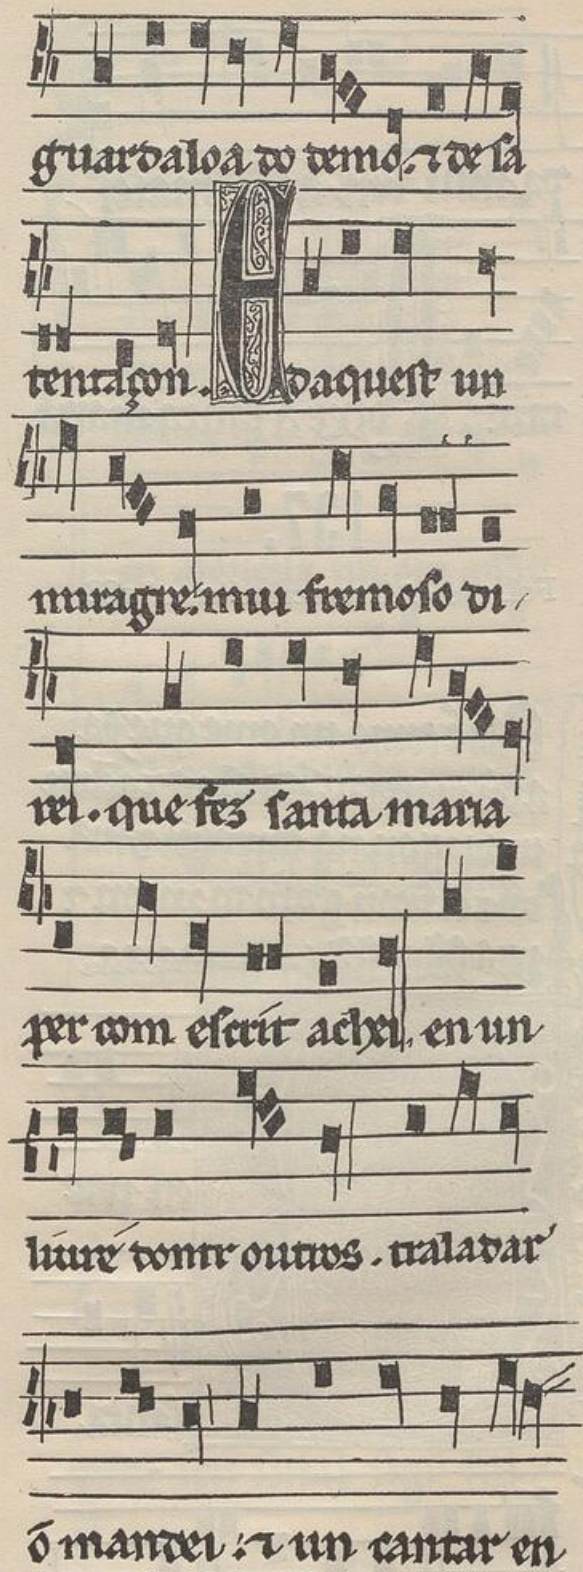 guardaloá do demo. ⁊ de sa
tentaçon. E daquest un
miragre. mui fremoso di /
rei. que fez santa maria
per com escrit achei. en un
liure dontr outros. traladar
õ mandei: ⁊ un cantar en